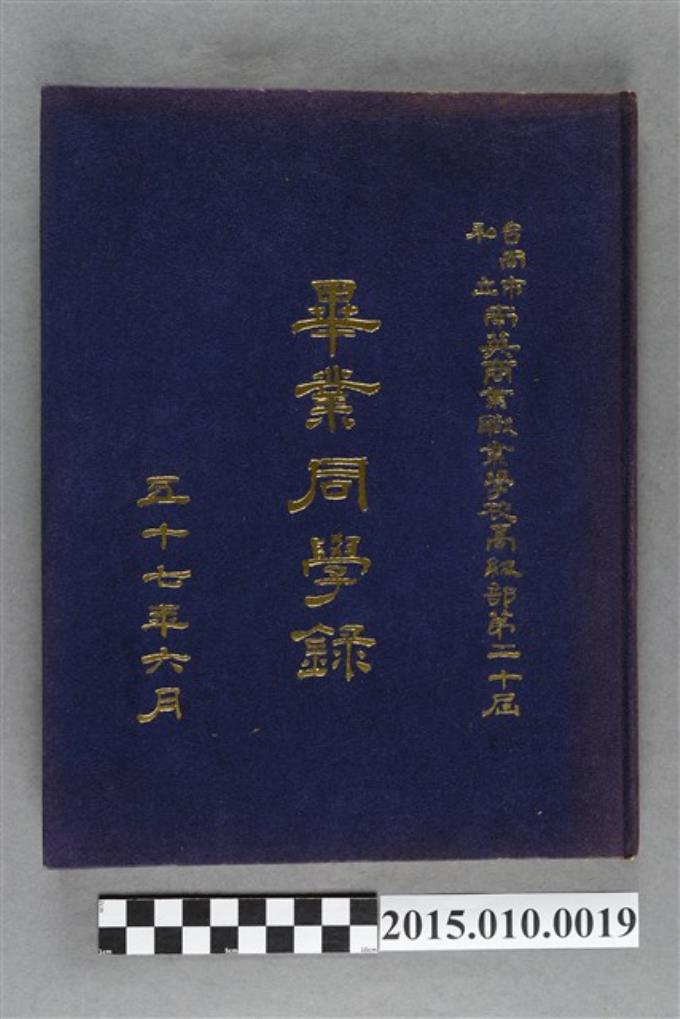 台南市
私立
南英商業職業學校高級部第二十屆
畢業同學錄
五十七年六月
1cm 5cm 10cm
2015.010.0019